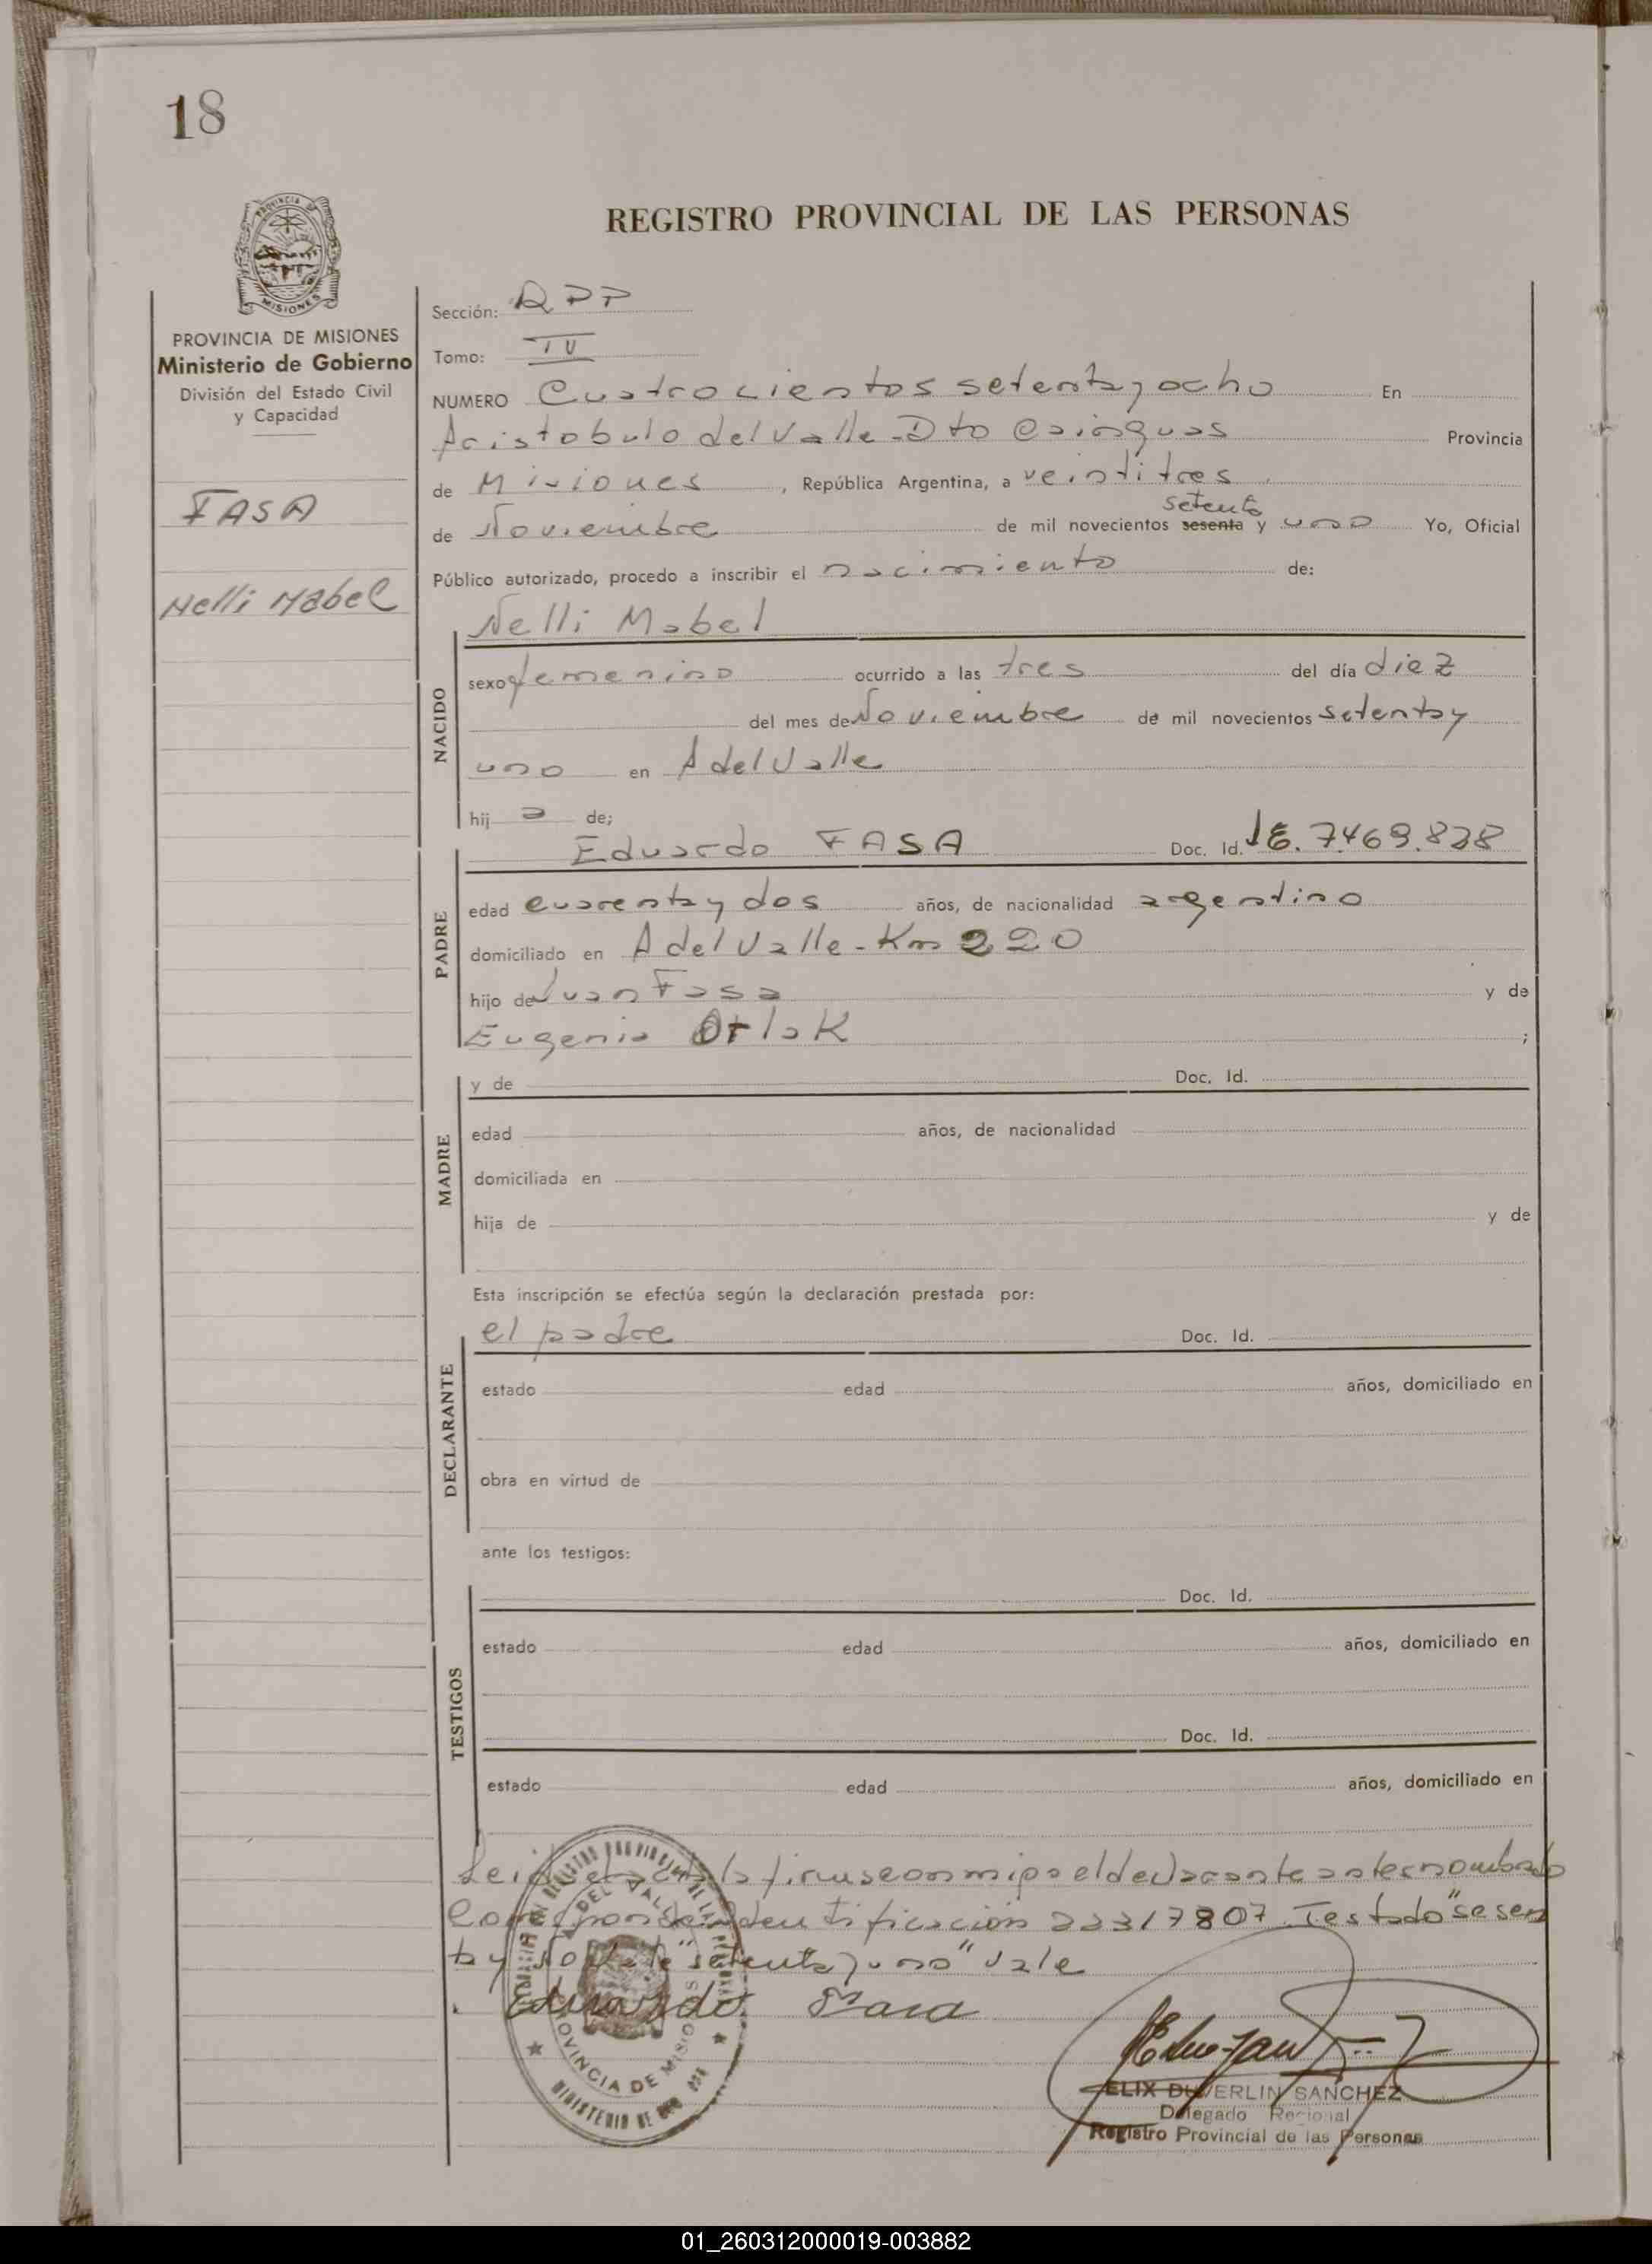 18
PROVINCIA DE
MISIONES
PROVINCIA DE MISIONES
Ministerio de Gobierno
División del Estado Civil
y Capacidad
FASA
Nelli Mabel
REGISTRO PROVINCIAL DE LAS PERSONAS
Sección: RPP
Tomo: IV
NUMERO Cuatrocientos setenta y ocho En
Aristobulo del Valle - Dto Cainguas Provincia
de Misiones, República Argentina, a veintitres
setenta
de Noviembre de mil novecientos sesenta y uno Yo, Oficial
Público autorizado, procedo a inscribir el nacimiento de:
Nelli Mabel
NACIDO
sexo femenino ocurrido a las tres del día diez
del mes de Noviembre de mil novecientos setenta y
uno en A del Valle
hij a de;
Eduardo FASA Doc. Id. 7.469.828
PADRE
edad cuarenta y dos años, de nacionalidad argentino
domiciliado en A del Valle - Km 220
hijo de Juan Fasa y de
Eugenia Orlak ;
MADRE
y de Doc. Id.
edad años, de nacionalidad
domiciliada en
hija de y de
Esta inscripción se efectúa según la declaración prestada por:
DECLARANTE
el padre Doc. Id.
estado edad años, domiciliado en
obra en virtud de
ante los testigos:
TESTIGOS
Doc. Id.
estado edad años, domiciliado en
Doc. Id.
estado edad años, domiciliado en
Leida el acta la firmseonmigo el declarante antes nombrado
Corresponde identificación 22317807. Testado "sesen
ta y "setenta y uno" vale
Eduardo Fasa
REGISTRO PROVINCIAL DE LAS PERSONAS
A. DEL VALLE
PROVINCIA DE MISIONES
MINISTERIO DE GOB
ELIX DUVERLIN SANCHEZ
Delegado Regional
Registro Provincial de las Personas
01_260312000019-003882